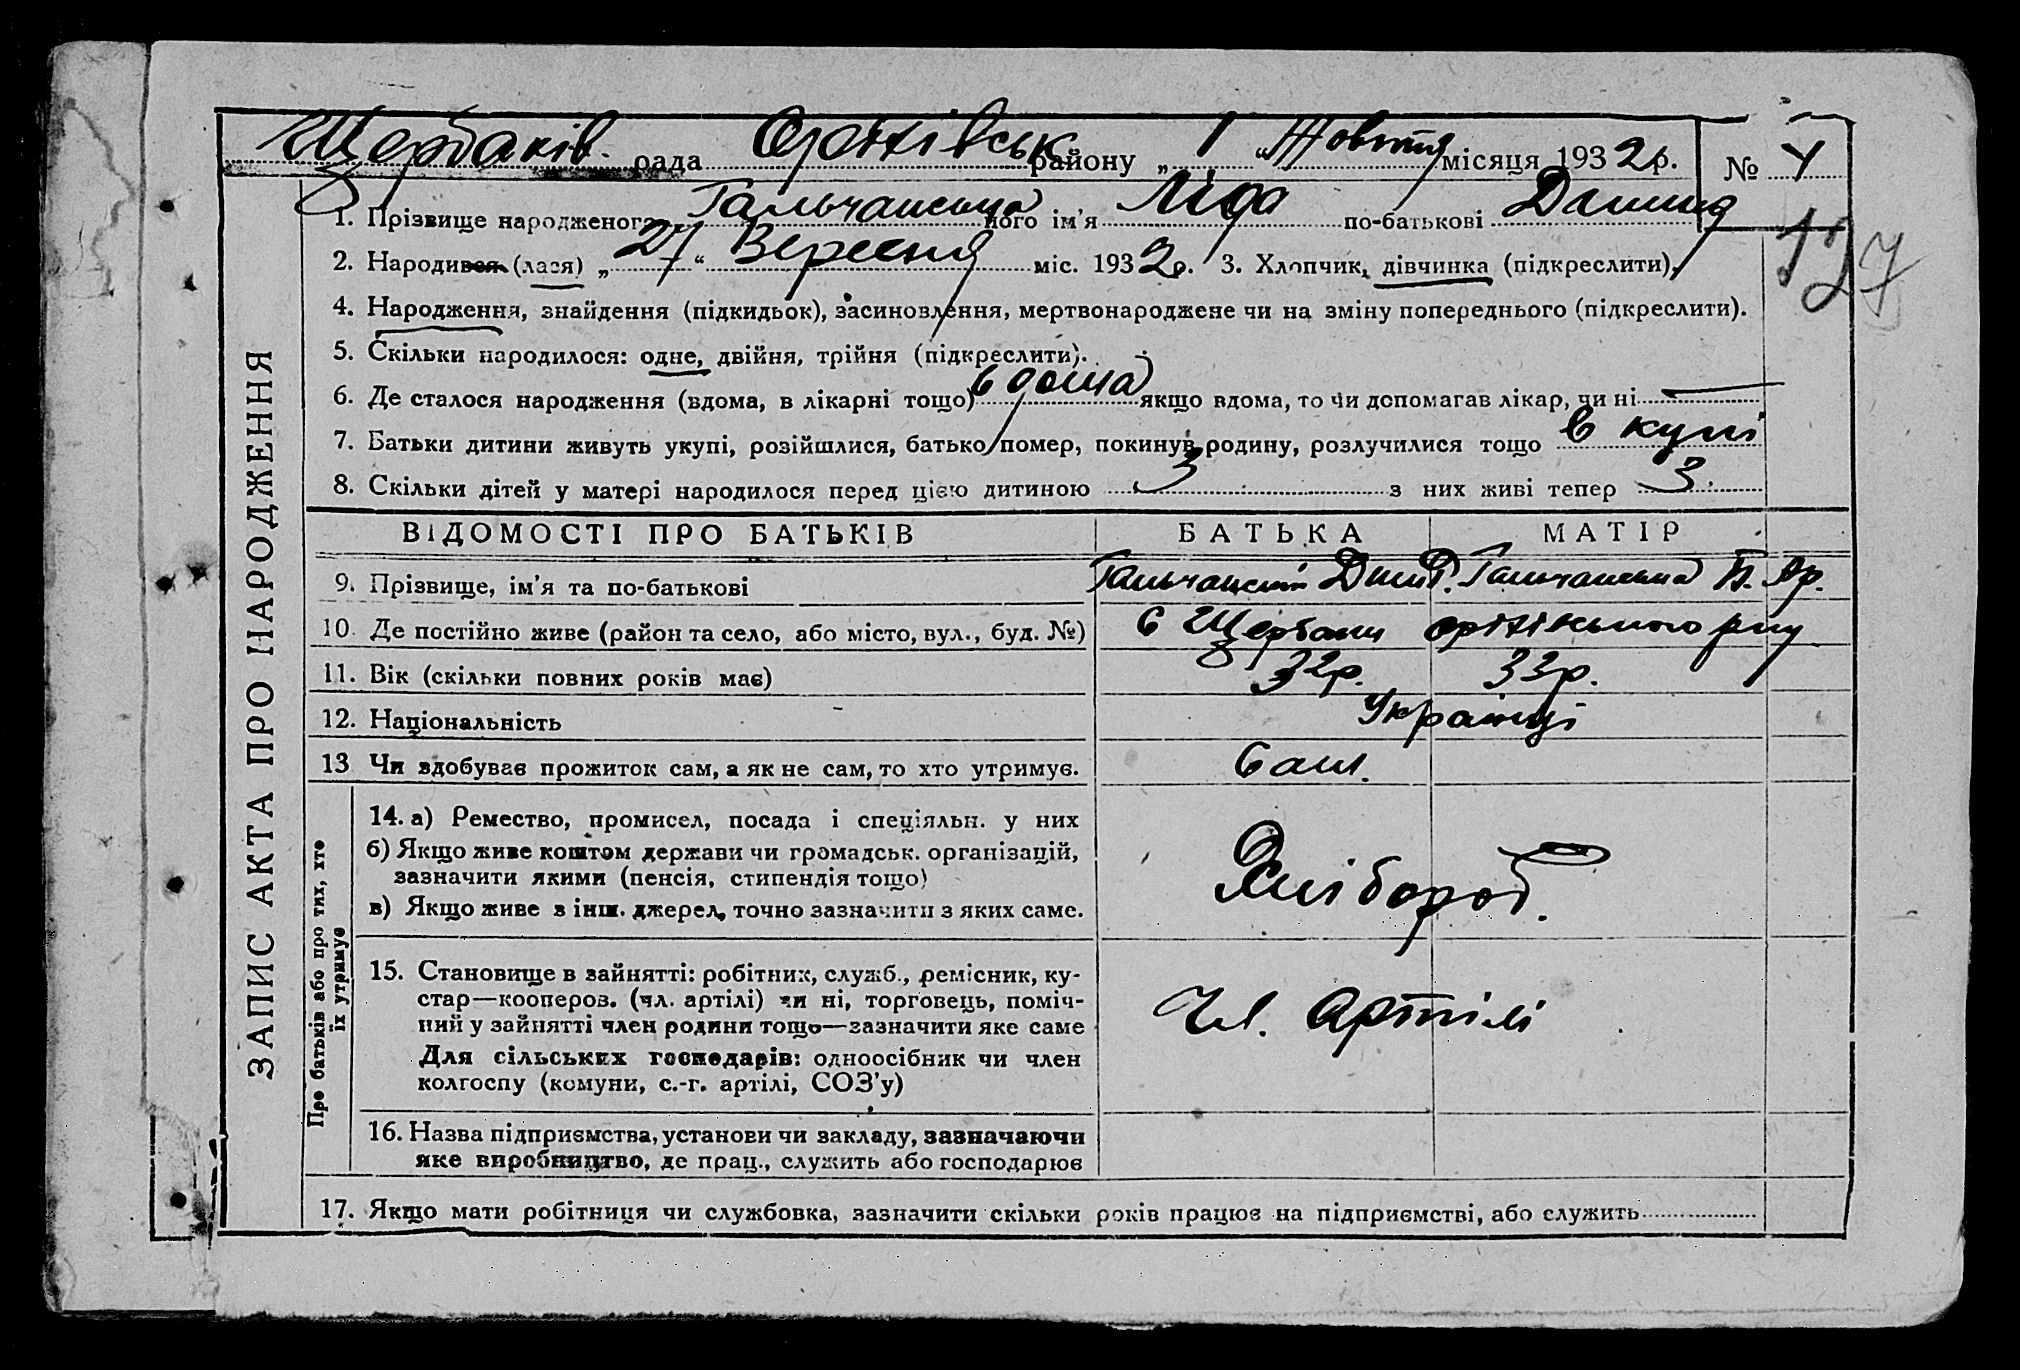 Щербаків рада Оратівськ району „ 1 “ Жовтня місяця 1932 р. № 4
1. Прізвище народженого Гальчанська його ім’я Ліда по-батькові
2. Народився (лася) „ 27 “ Вересня міс. 1932 р. 3. Хлопчик, дівчинка (підкреслити).
4. Народження, знайдення (підкидьок), засиновлення, мертвонароджене чи на зміну попереднього (підкреслити).
5. Скільки народилося: одне, двійня, трійня (підкреслити).
6. Де сталося народження (вдома, в лікарні тощо) вдома якщо вдома, то чи допомагав лікар, чи ні —
7. Батьки дитини живуть укупі, розійшлися, батько помер, покинув родину, розлучилися тощо в купі
8. Скільки дітей у матері народилося перед цією дитиною 3 з них живі тепер 3.
ВІДОМОСТІ ПРО БАТЬКІВ БАТЬКА МАТІР
9. Прізвище, ім’я та по-батькові Гальчанський Дмит. Гальчанська П. Яр.
10. Де постійно живе (район та село, або місто, вул., буд. №) с Щербаки орітівського р-ну
11. Вік (скільки повних років має) 32р. 33р.
12. Національність Українці
13. Чи здобуває прожиток сам, а як не сам, то хто утримує. Сам.
14. а) Ремество, промисел, посада і спеціяльн. у них
б) Якщо живе коштом держави чи громадськ. організацій,
зазначити якими (пенсія, стипендія тощо)
в) Якщо живе з інш. джерел, точно зазначити з яких саме.
Хлібороб.
15. Становище в зайнятті: робітник, служб., ремісник, ку-
стар—коопероз. (чл. артілі) чи ні, торговець, поміч-
ний у зайнятті член родини тощо—зазначити яке саме
Для сільських господарів: одноосібник чи член
колгоспу (комуни, с.-г. артілі, СОЗ’у)
Чл. Артілі
16. Назва підприємства, установи чи закладу, зазначаючи
яке виробництво, де прац., служить або господарює
17. Якщо мати робітниця чи службовка, зазначити скільки років працює на підприємстві, або служить
ЗАПИС АКТА ПРО НАРОДЖЕННЯ
Про батьків або про тих, хто
їх утримує